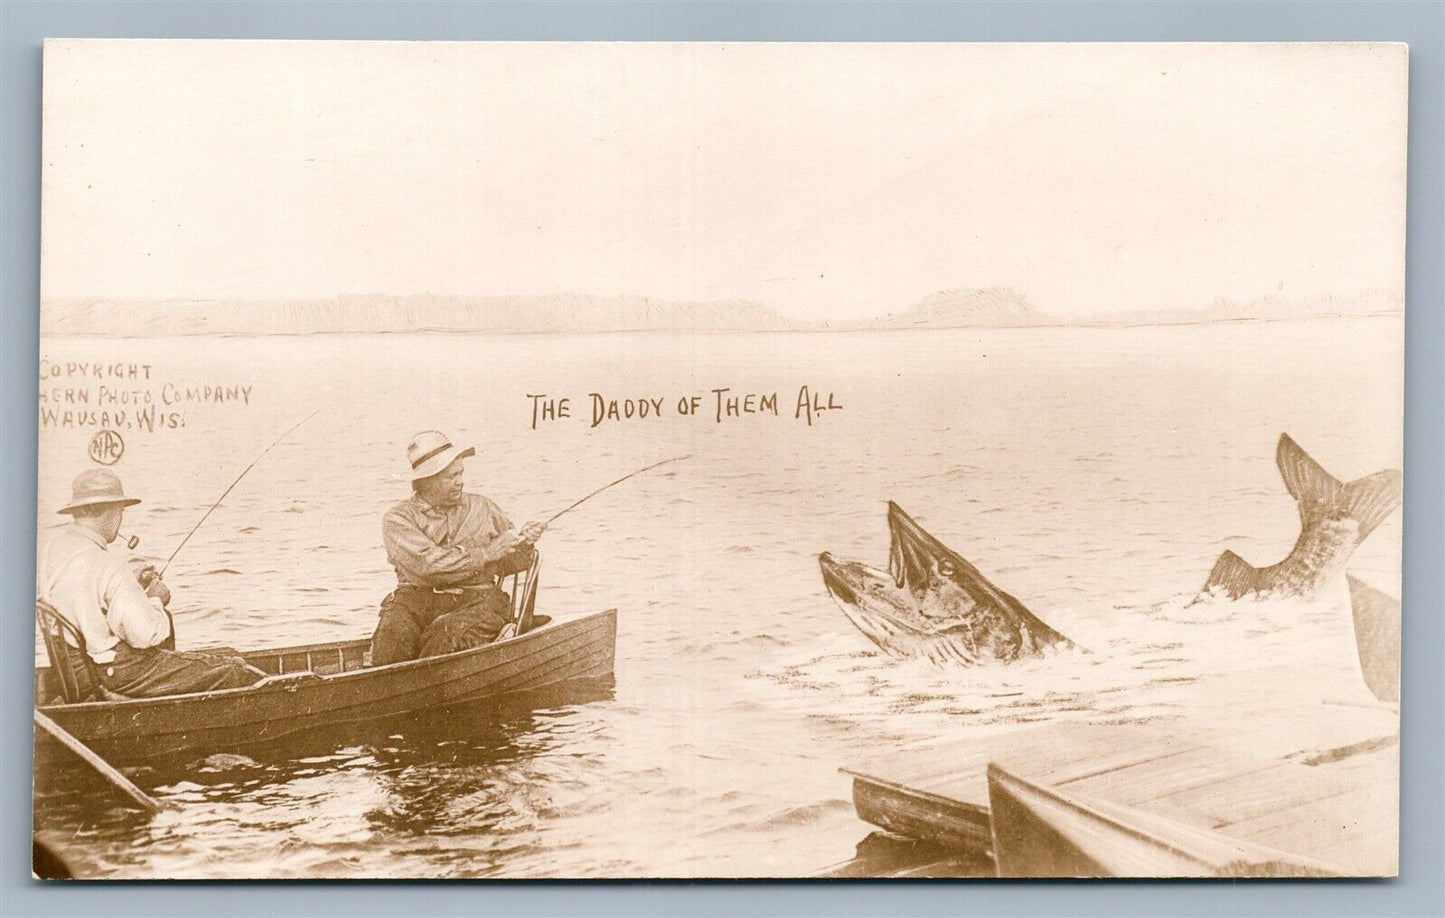 COPYRIGHT
HERN PHOTO COMPANY
WAUSAU, WIS.
NPC
THE DADDY OF THEM ALL